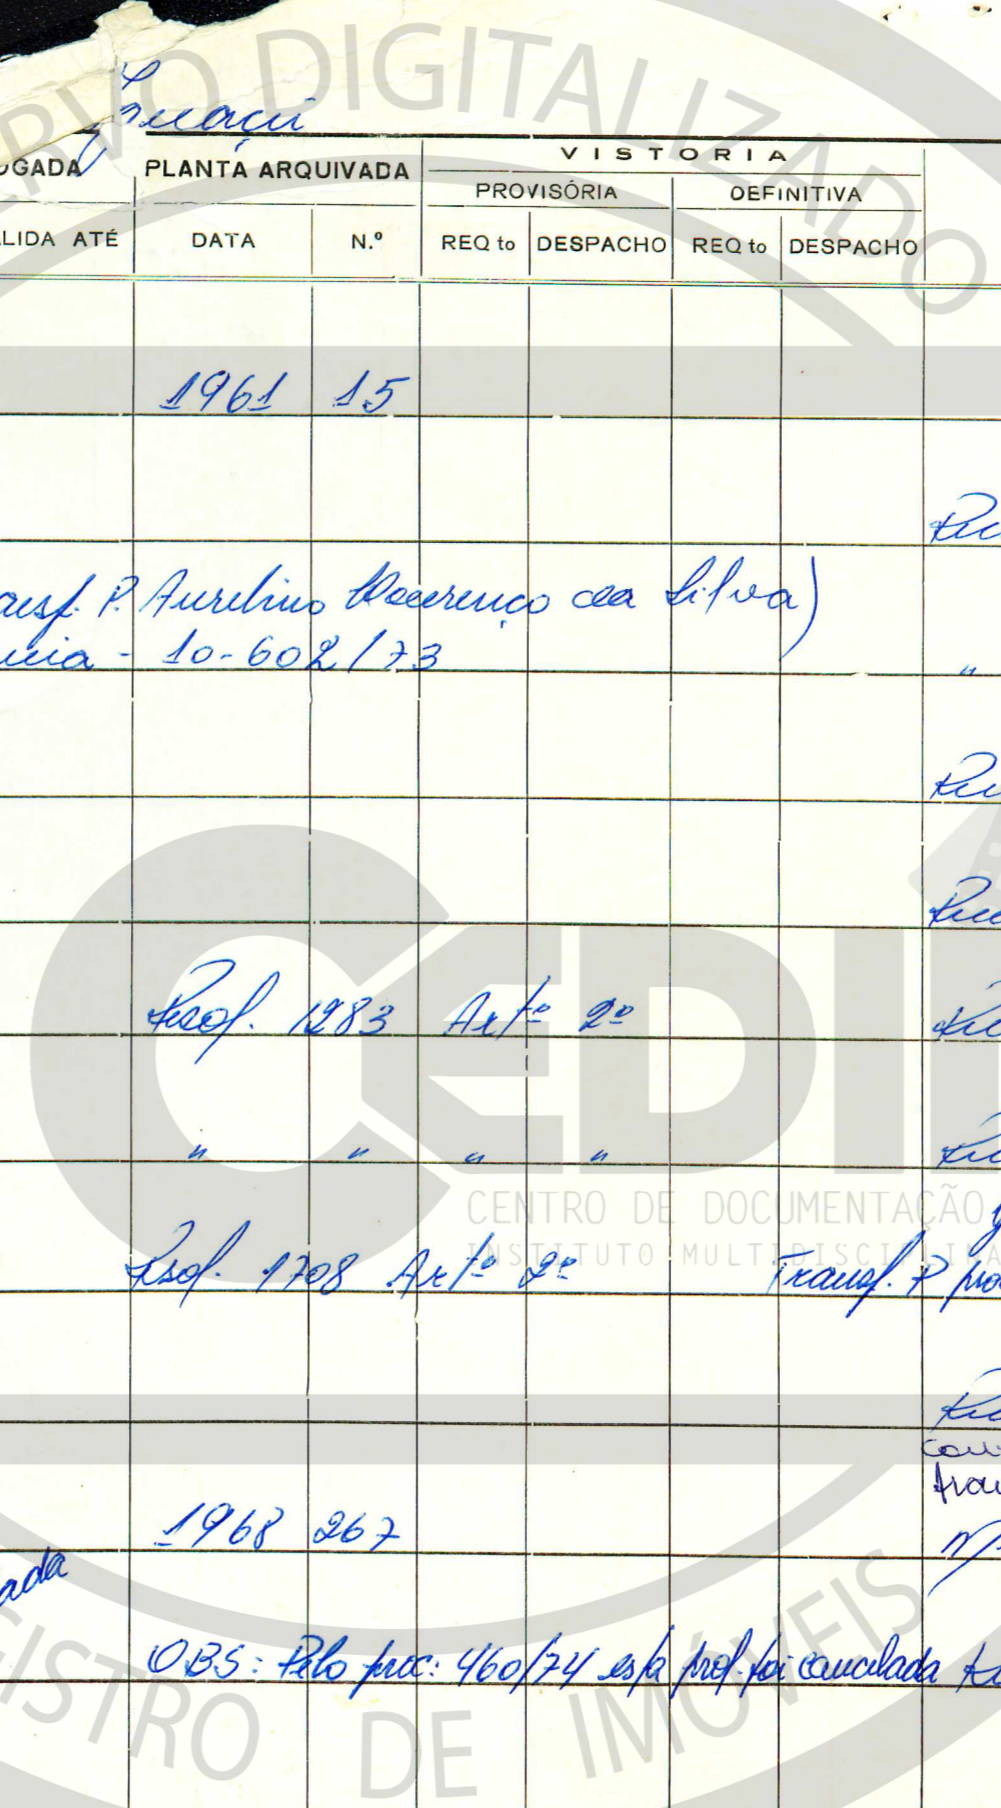 DIGITALIZADO
OGADA PLANTA ARQUIVADA VISTORIA
PROVISÓRIA DEFINITIVA
LIDA ATÉ DATA N.º REQ to DESPACHO REQ to DESPACHO
1961 15
P. Aurelino Lourenço da Silva)
10-602/73 "
Resol. 1283 Artº 2º
" " " "
CENTRO DE DOCUMENTAÇÃO
INSTITUTO MULTIDISCIPLINA
Resol. 1708 Artº 2º Transf. P
1968 267
ada
OBS: Pelo proc: 460/74 esta prof. foi cancelada
ISTRO DE IMÓVEIS